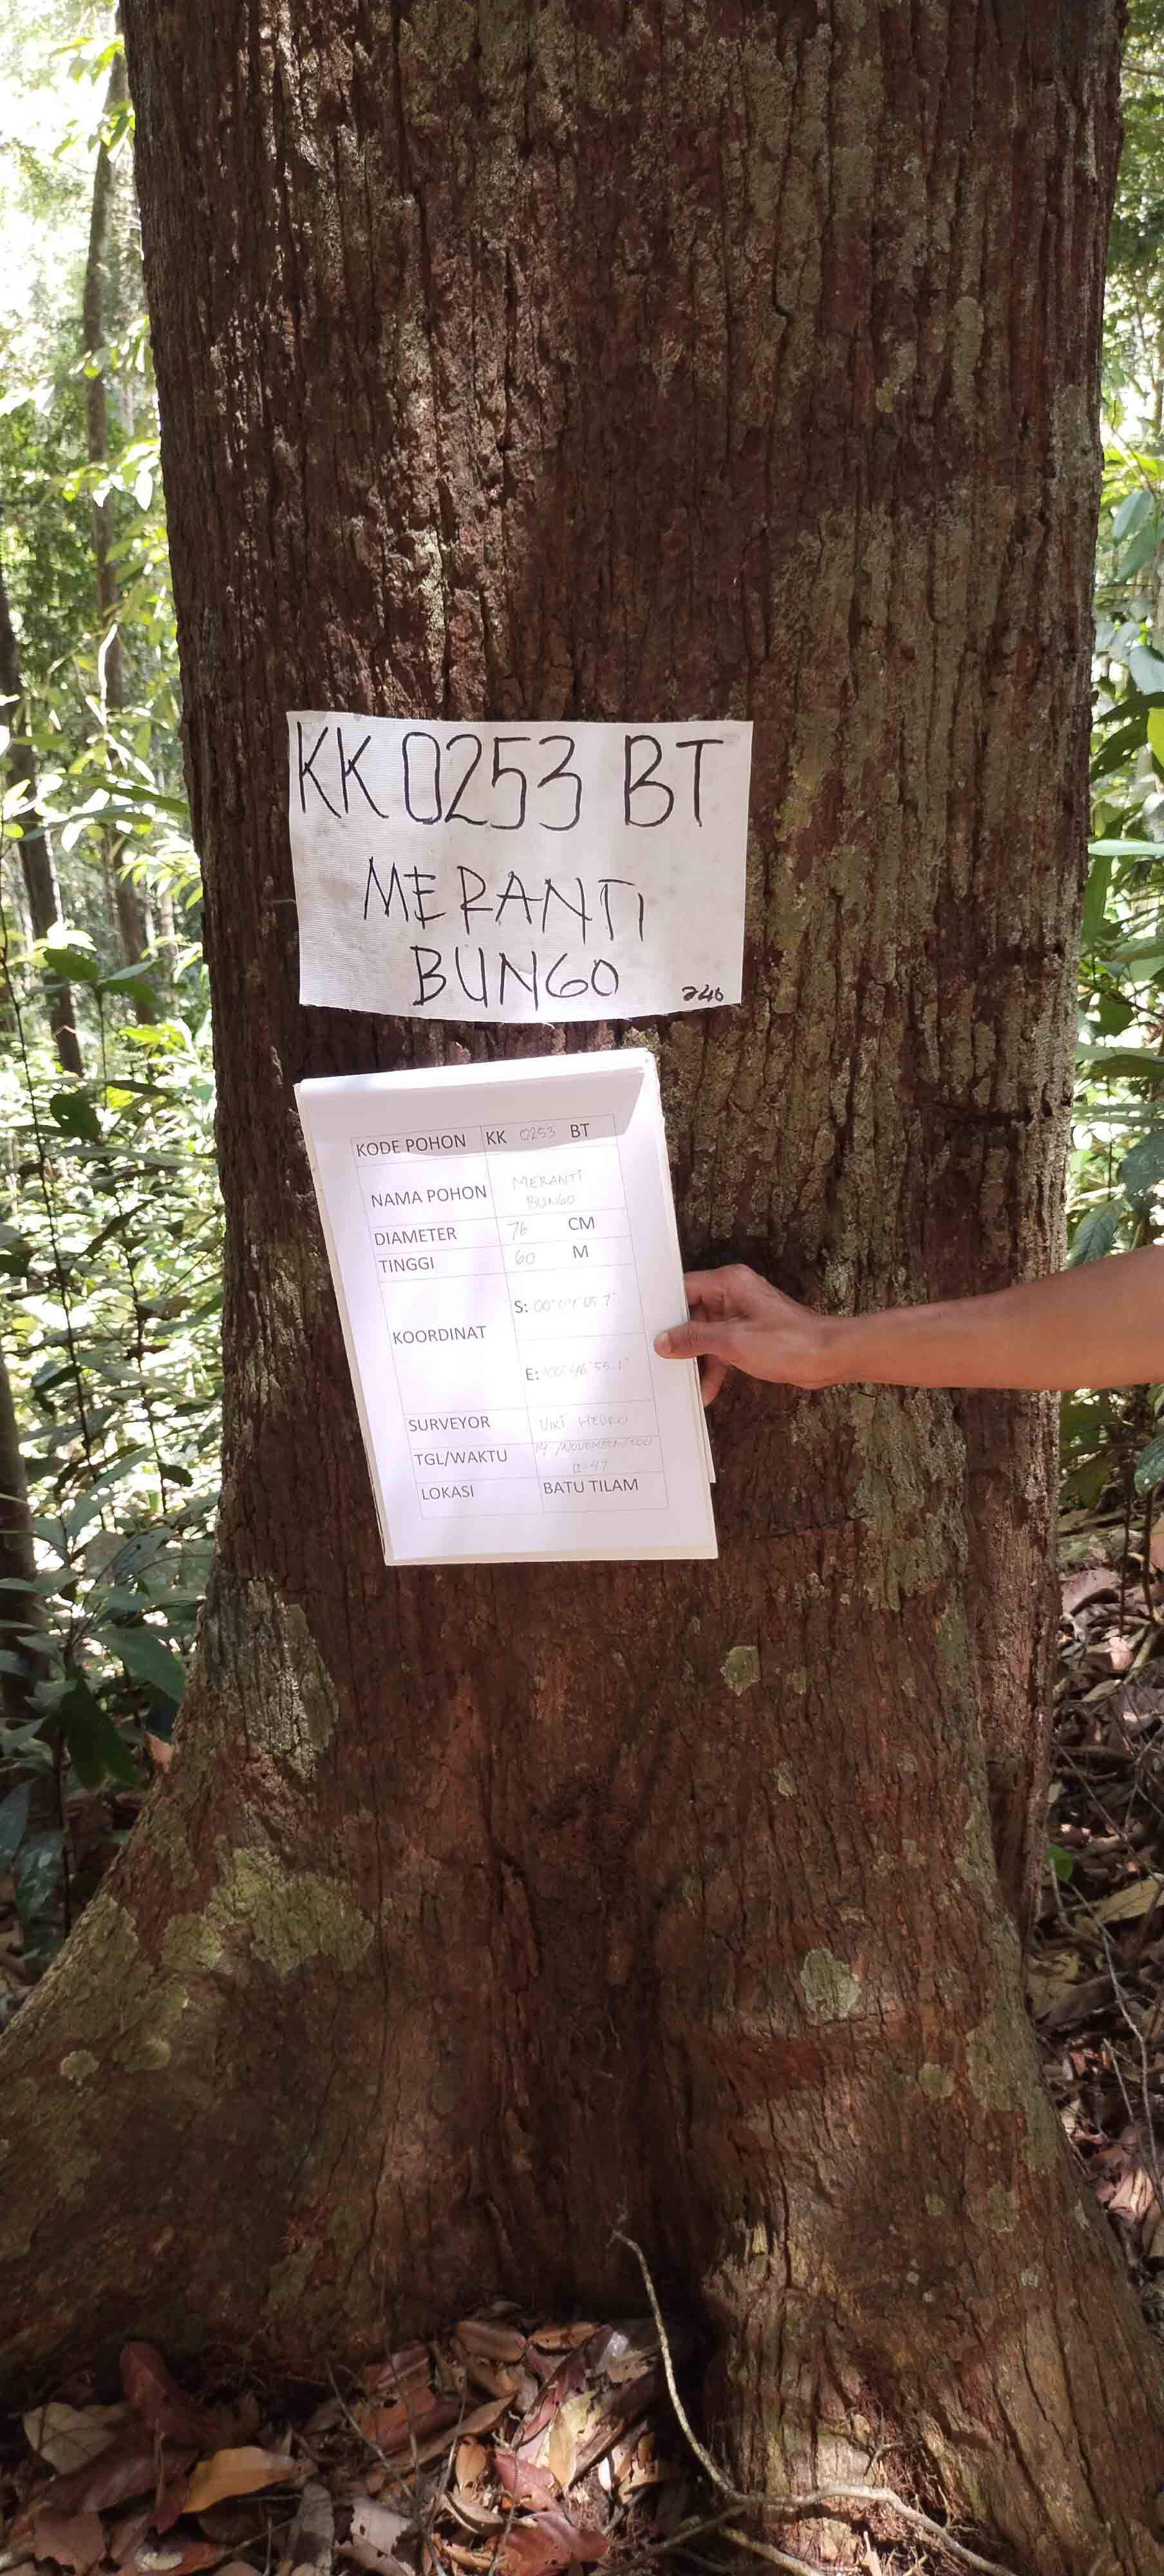 KK 0253 BT
MERANTI
BUNGO
KODE POHON KK 0253 BT
NAMA POHON MERANTI
BUNGO
DIAMETER 76 CM
TINGGI 60 M
KOORDINAT
S:
E:
SURVEYOR
TGL/WAKTU 14 /NOVEMBER/
LOKASI BATU TILAM